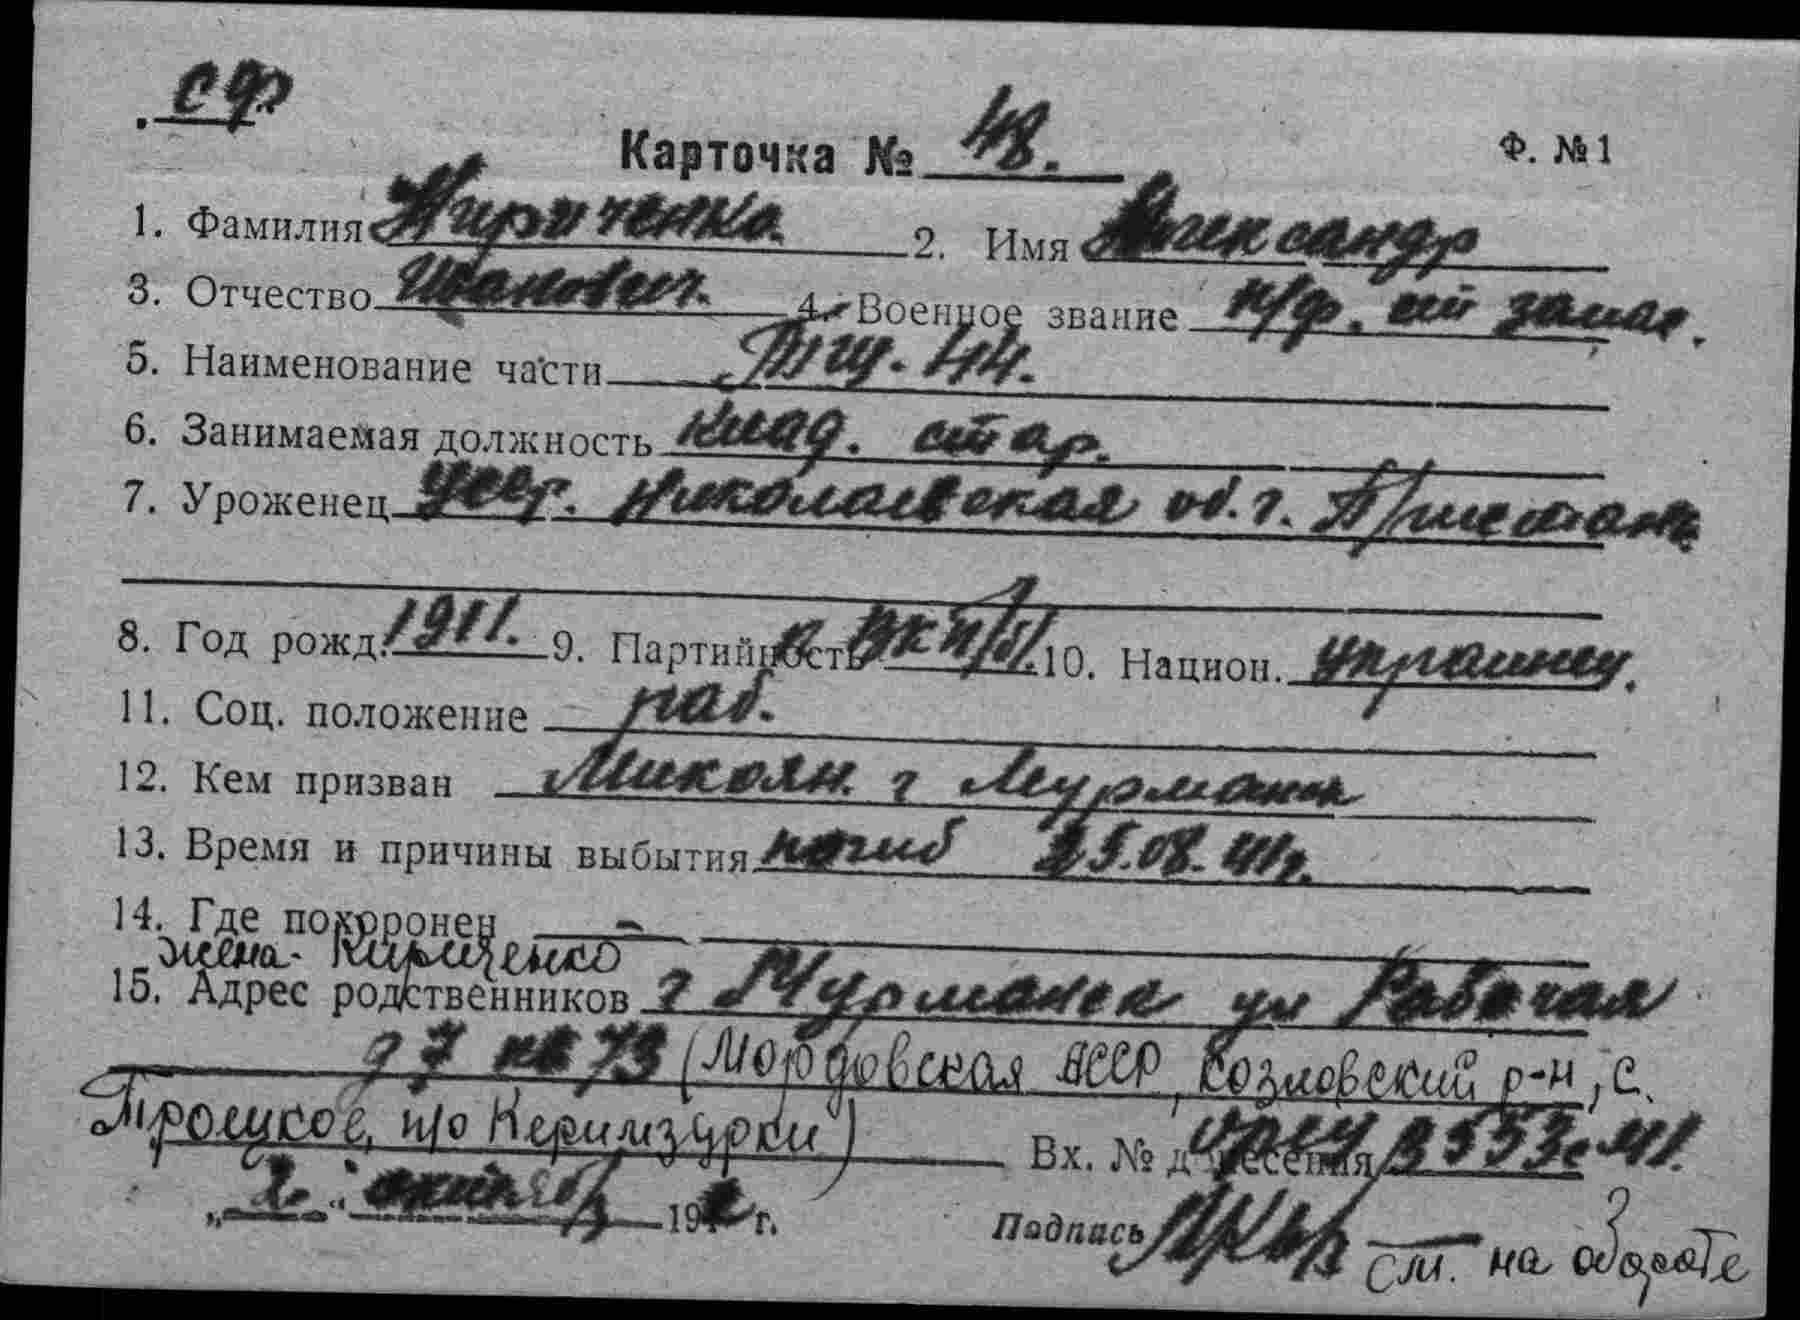 СФ
Карточка № 48. Ф. №1
1. Фамилия Кириченко. 2. Имя Александр
3. Отчество Иванович. 4. Военное звание к/ф. ст запас.
5. Наименование части Тщ. 44.
6. Занимаемая должность стар.
7. Уроженец Усср. Николаевская об. г. Пристань
8. Год рожд. 1911. 9. Партийность к ВКП/б/. 10. Национ. украинец.
11. Соц. положение раб.
12. Кем призван Микоян. г Мурманск
13. Время и причины выбытия погиб 25.08.41г.
14. Где похоронен -
жена- Кириченко
15. Адрес родственников г Мурманск ул Рабочая
д 7 кв 73 (Мордовская АССР, Козловский р-н, с.
Троицкое, п/о Керимзурки)
Вх. № донесения 553с 41.
„2“ октября 194 г. Подпись
См. на обороте